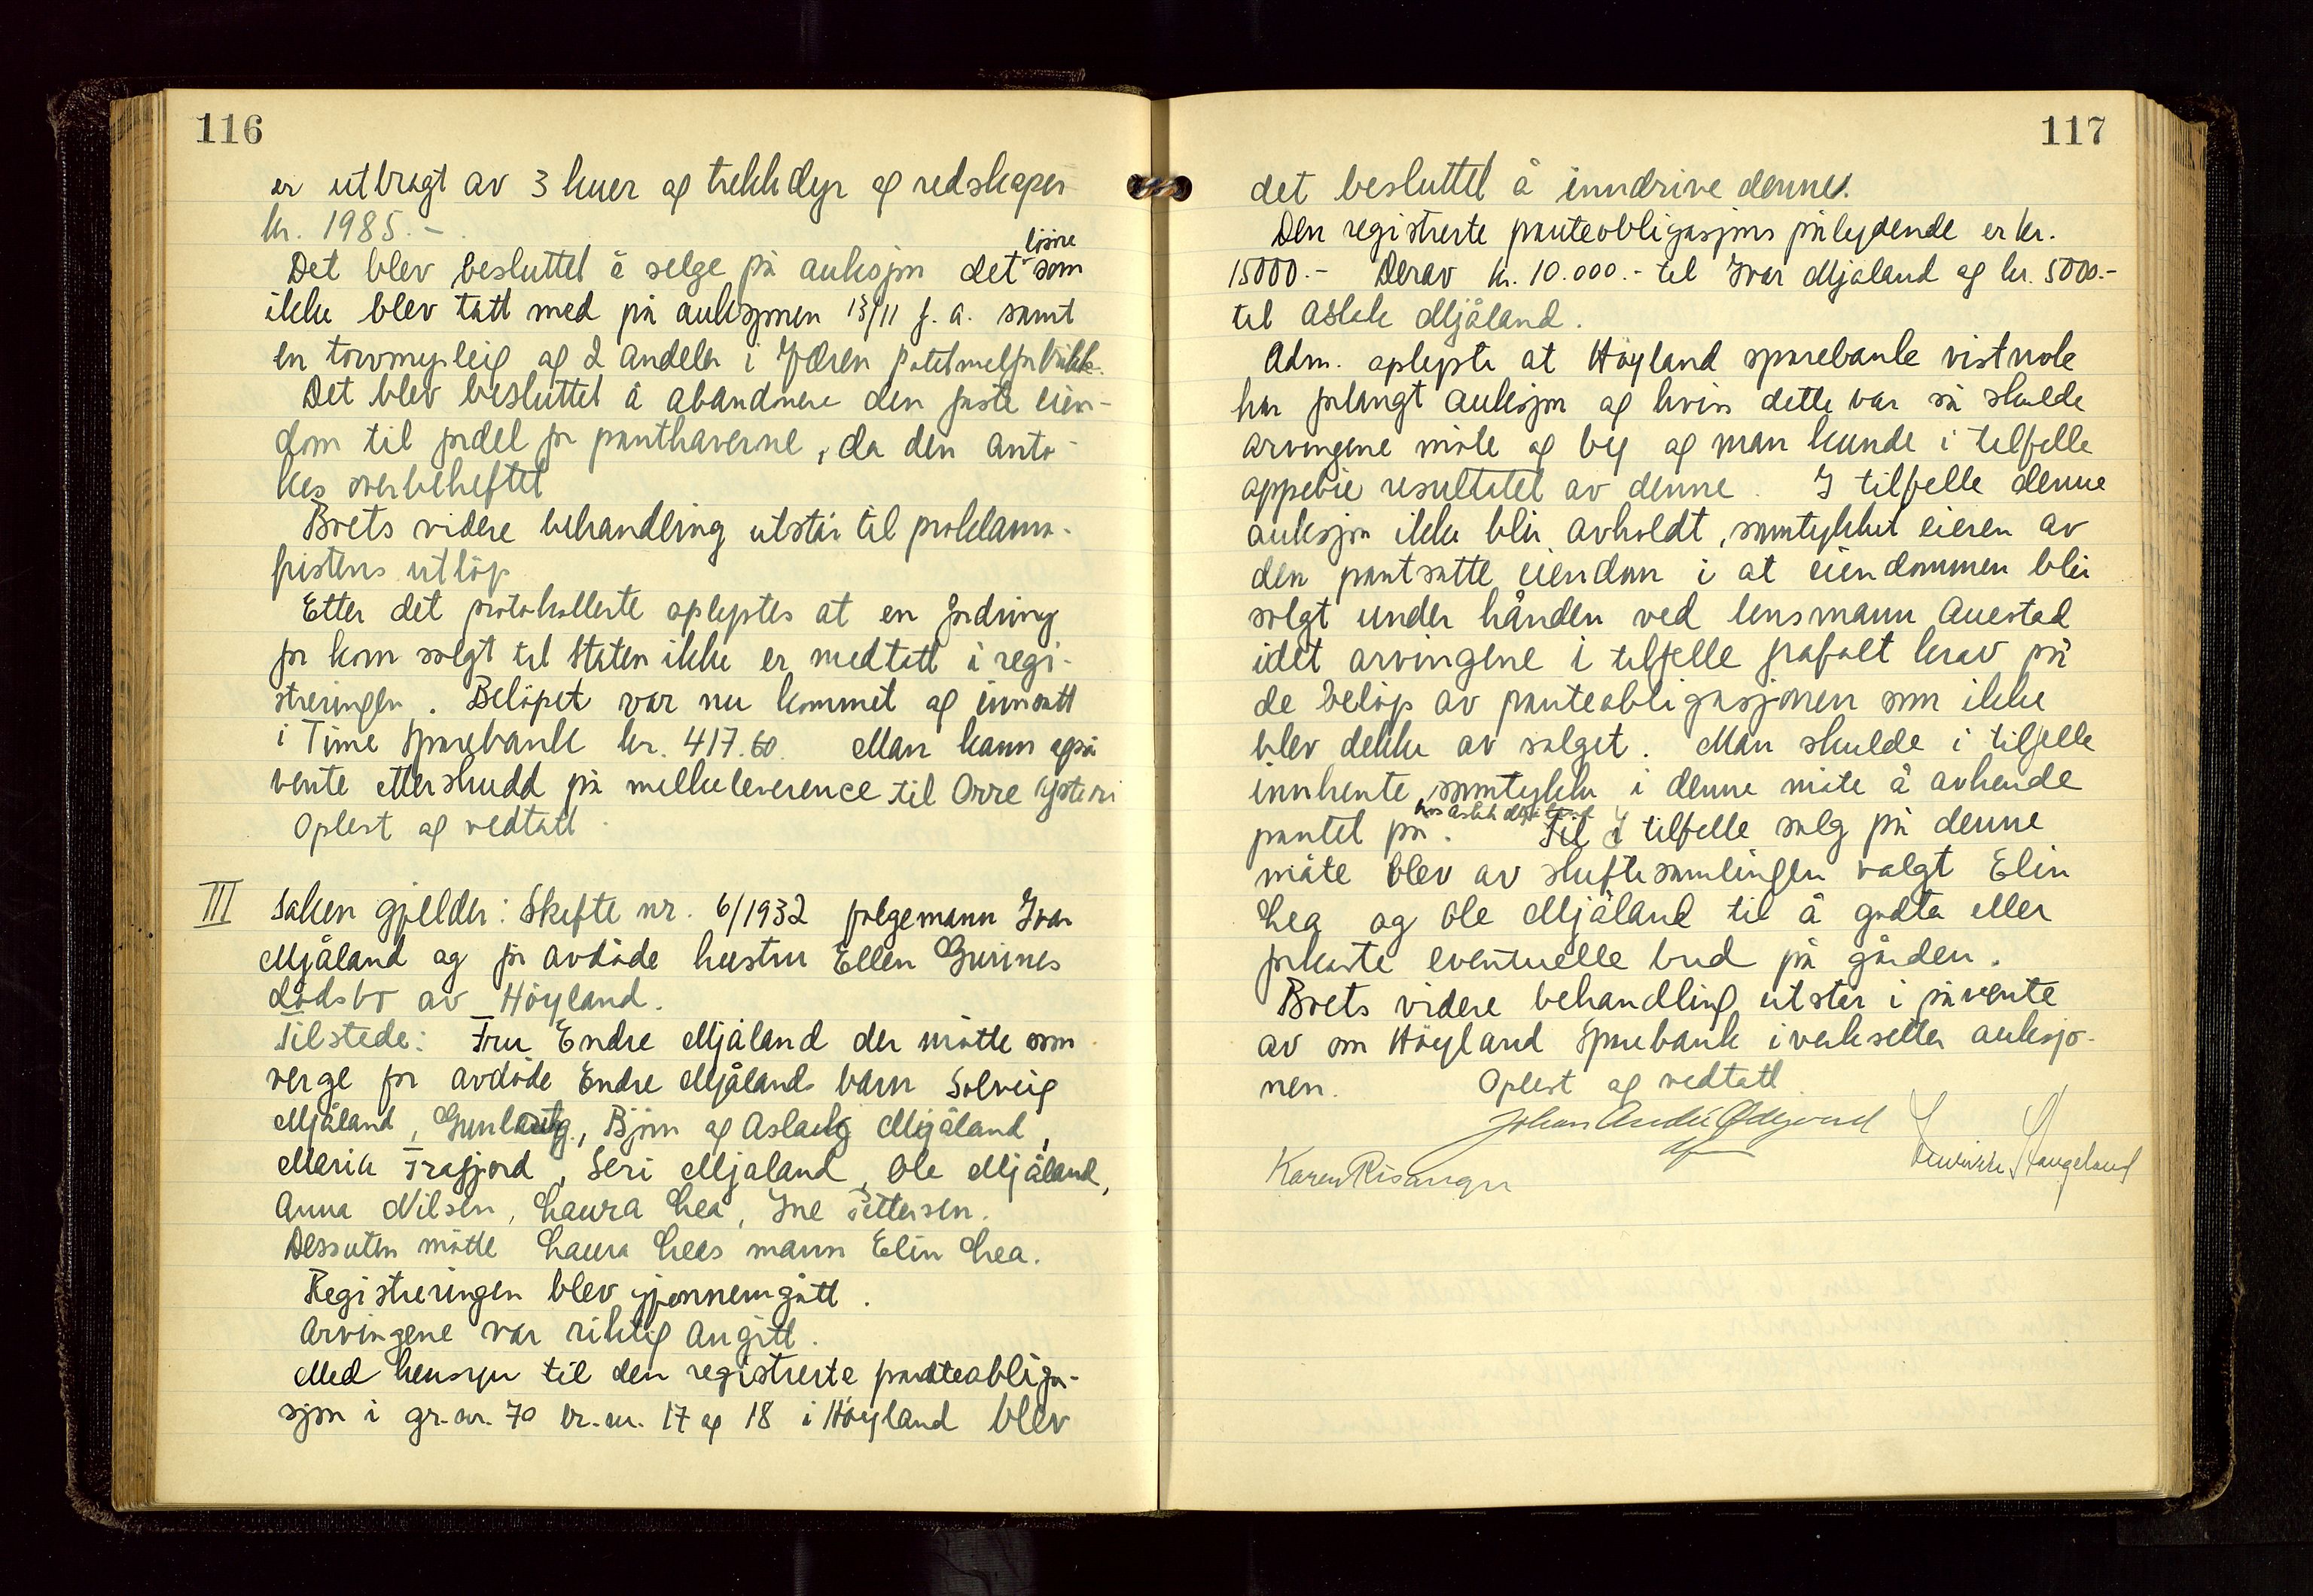 116
er utbragt av 3 kuer og trekkdyr og redskaper
kr. 1985.-
Det blev besluttet å selge på auksjon det løsøre som
ikke blev tatt med på auksjonen 13/11 f. a. samt
en torvmyrleig og 2 andeler i Jæren potetmelfabrikk.
Det blev besluttet å abandonere den faste eien-
dom til fordel for panthaverne, da den anto-
kes overbeheftet
Boets videre behandling utstår til proklama-
fristens utløp
Etter det protokollerte oplystes at en fordring
for korn solgt til Staten ikke er medtatt i regi-
streringen. Beløpet var nu kommet og innsatt
i Time Sparebank kr. 417.60. Man kann også
vente etterskudd på melkeleverence til Orre Ysteri
Oplest og vedtatt.
III Saken gjelder: Skifte nr. 6/1932 folgemann Ivar
Mjåland og for avdøde hustru Ellen Gurines
dødsbo av Höyland.
Tilstede: Fru Endre Mjåland der møtte som
verge for avdøde Endre Mjålands barn Solveig
Mjåland, Gunlaug, Bjørn og Aslaug Mjåland,
Marie Frafjord, Seri Mjaland, Ole Mjåland,
Anna Nilsen, Laura Lea, Ine Pettersen.
Dessuten møtte Laura Leas mann Elin Lea.
Registreringen blev gjennemgått.
Arvingene var riktig angitt.
Med hensyn til den registrerte panteobliga-
sjon i gr.nr. 70 br.nr. 17 og 18 i Höyland blev
117
det besluttet å inndrive denne.
Den registrerte panteobligasjons pålydende er kr.
15000.- Derav kr. 10.000.- til Ivar Mjåland og kr. 5000.-
til Aslak Mjåland.
Adm. oplyste at Höyland sparebank vistnok
har forlangt auksjon og hvis dette var så skulde
arvingene møte og by og man kunde i tilfelle
appebie resultatet av denne. I tilfelle denne
auksjon ikke blir avholdt, samtykket eieren av
den pantsatte eiendom i at eiendommen blir
solgt under hånden ved lensmann Auestad
idet arvingene i tilfelle frafalt krav på
de beløp av panteobligasjonen som ikke
blev dekke av salget. Man skulde i tilfelle
innhente samtykke i denne måte å avhende
pantet på hos Aslak Mjåland. I tilfelle salg på denne
måte blev av skiftesamlingen valgt Elin
Lea og Ole Mjåland til å godta eller
forkaste eventuelle bud på gården.
Boets videre behandling utstår i påvente
av om Höyland Sparebank iverksetter auksjo-
nen. Oplest og vedtatt
Johan André Ødegaard
Karen Risanger Haugeland